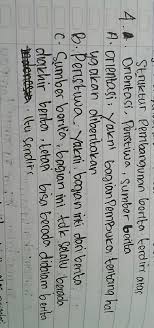 4
Struktur Pembangunan berita terdiri atas
Orientasi, Peristiwa, sumber berita
A. orientasi, yakni bagian Pembuka tentang hal
yg akan diberitakan
B. Peristiwa, yakni bagian inti dari berita
C. Sumber berita, bagian ini tak selalu berada
diakhir berita, tetapi bisa berada didalam berita
itu sendiri